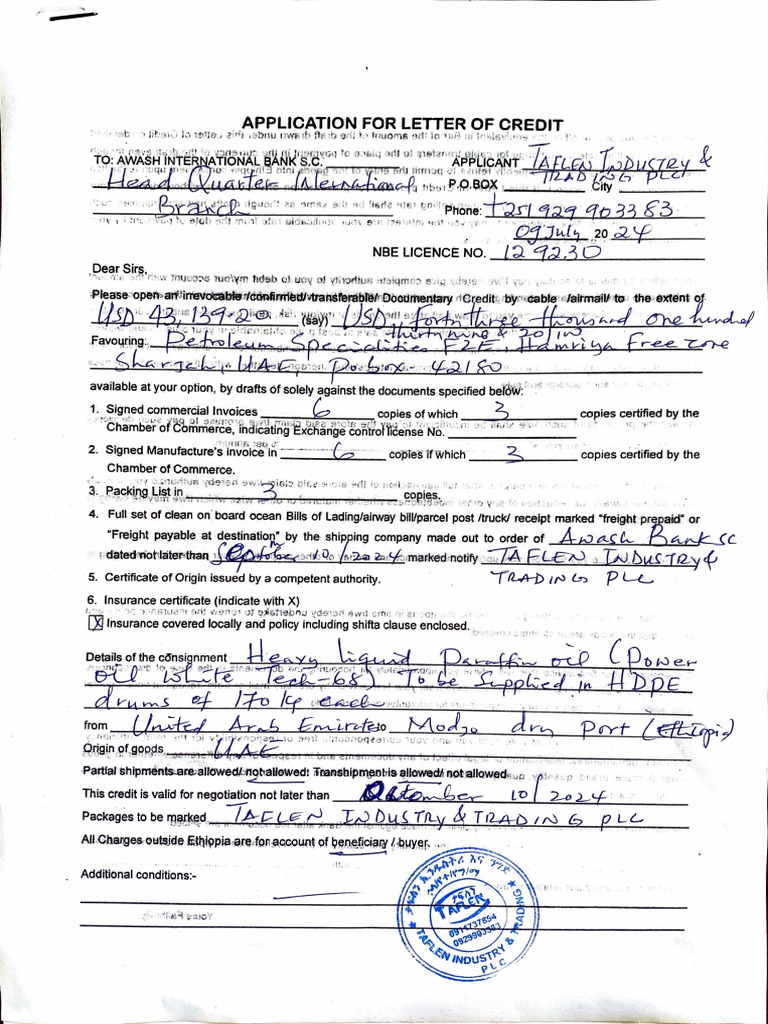 APPLICATION FOR LETTER OF CREDIT
TO: AWASH INTERNATIONAL BANK S.C. APPLICANT TAFLEN INDUSTRY &
TRADING PLC
Head Quarter International P.O.BOX City
Branch Phone: +251 929 903383
09 July 2024
NBE LICENCE NO. 129230
Dear Sirs,
Please open an irrevocable /confirmed/transferable/ Documentary Credit by cable /airmail/ to the extent of
USD 43,139.20 (say) USD forty three thousand one hundred
thirty nine & 20/100
Favouring: Petroleum Specialities FZE, Hamriya Free zone
Sharjah, UAE, Po box - 42180
available at your option, by drafts of solely against the documents specified below:
1. Signed commercial Invoices 6 copies of which 3 copies certified by the
Chamber of Commerce, indicating Exchange control license No.
2. Signed Manufacture's invoice in 6 copies if which 3 copies certified by the
Chamber of Commerce.
3. Packing List in 3 copies.
4. Full set of clean on board ocean Bills of Lading/airway bill/parcel post /truck/ receipt marked "freight prepaid" or
"Freight payable at destination" by the shipping company made out to order of Awash Bank SC
dated not later than 10/2024 marked notify TAFLEN INDUSTRY &
TRADING PLC
5. Certificate of Origin issued by a competent authority.
6. Insurance certificate (indicate with X)
X Insurance covered locally and policy including shifta clause enclosed.
Details of the consignment Heavy liquid Paraffin oil (Power
oil white Tech-68) To be Supplied in HDPE
drums of 170 kg each
from United Arab Emirates to Modjo dry Port (Ethiopia)
Origin of goods UAE
Partial shipments are allowed/ not allowed: Transhipment is allowed/ not allowed
This credit is valid for negotiation not later than October 10/2024
Packages to be marked TAFLEN INDUSTRY & TRADING PLC
All Charges outside Ethiopia are for account of beneficiary / buyer.
Additional conditions:-
ታፍለን ኢንዱስትሪ እና ንግድ
ታፍለን
TAFLEN
0911737654
0929903383
TAFLEN INDUSTRY & TRADING
PLC